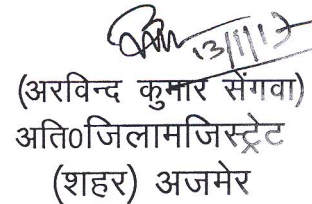 13/1/17
(अरविन्द कुमार सेंगवा)
अति0जिलामजिस्ट्रेट
(शहर) अजमेर